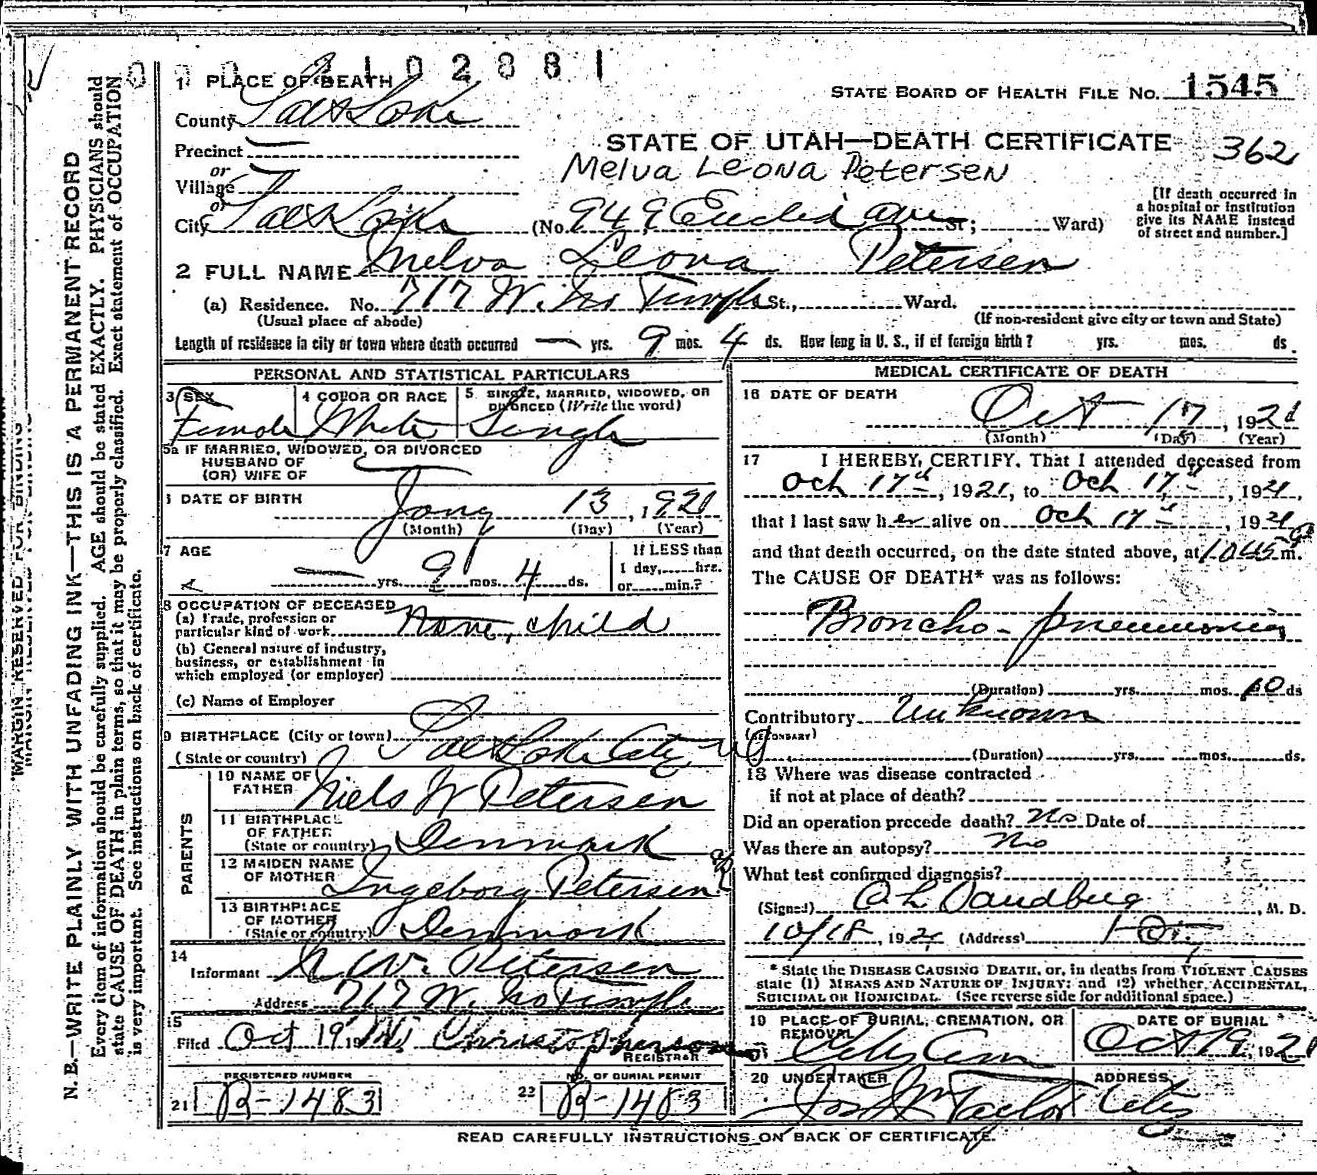 0 0 0 2 1 0 2 8 8 1
1 PLACE OF DEATH
STATE BOARD OF HEALTH FILE NO. 1545
County Salt Lake
STATE OF UTAH—DEATH CERTIFICATE 362
Precinct —
MELVA LEONA PETERSEN
or
Village —
or
City Salt Lake (No. 949 Euclid ave St; Ward)
[If death occurred in
a hospital or institution
give its NAME instead
of street and number.]
2 FULL NAME Melva Leona Petersen
(a) Residence. No. 717 W. No Temple St., Ward.
(Usual place of abode)
(If non-resident give city or town and State)
Length of residence in city or town where death occurred — yrs. 9 mos. 4 ds. How long in U. S., if of foreign birth? yrs. mos. ds.
PERSONAL AND STATISTICAL PARTICULARS
3 SEX
Female
4 COLOR OR RACE
White
5 SINGLE, MARRIED, WIDOWED, OR
DIVORCED (Write the word)
Single
5a IF MARRIED, WIDOWED, OR DIVORCED
HUSBAND OF
(OR) WIFE OF —
6 DATE OF BIRTH Jany 13, 1921
(Month) (Day) (Year)
7 AGE
— yrs. 9 mos. 4 ds.
If LESS than
1 day, hrs.
or min.?
8 OCCUPATION OF DECEASED
(a) Trade, profession or
particular kind of work None, child
(b) General nature of industry,
business, or establishment in
which employed (or employer)
(c) Name of Employer
9 BIRTHPLACE (City or town)
(State or country) Salt Lake City, Ut
PARENTS
10 NAME OF
FATHER Niels W Petersen
11 BIRTHPLACE
OF FATHER
(State or country) Denmark
12 MAIDEN NAME
OF MOTHER Ingeborg Petersen
13 BIRTHPLACE
OF MOTHER
(State or country) Denmark
14
Informant N. W. Petersen
Address 717 W. No Temple
15
Filed Oct 19 Christopherson
REGISTRAR
REGISTERED NUMBER
21 R-1483
NO. OF BURIAL PERMIT
22 R-1483
MEDICAL CERTIFICATE OF DEATH
16 DATE OF DEATH
Oct 17, 1921
(Month) (Day) (Year)
17 I HEREBY CERTIFY, That I attended deceased from
Oct 17th, 1921, to Oct 17th, 1921,
that I last saw her alive on Oct 17th, 1921
and that death occurred, on the date stated above, at 10:45 m.
The CAUSE OF DEATH* was as follows:
Broncho-pneumonia
(Duration) yrs. mos. 10 ds
Contributory Unknown
(SECONDARY)
(Duration) yrs. mos. ds.
18 Where was disease contracted
if not at place of death?
Did an operation precede death? No Date of
Was there an autopsy? No
What test confirmed diagnosis?
(Signed) M. D.
10/18, 1921 (Address)
* State the DISEASE CAUSING DEATH, or, in deaths from VIOLENT CAUSES
state (1) MEANS AND NATURE OF INJURY; and (2) whether ACCIDENTAL,
SUICIDAL OR HOMICIDAL. (See reverse side for additional space.)
19 PLACE OF BURIAL, CREMATION, OR
REMOVAL
City Cem
DATE OF BURIAL
Oct 19, 1921
20 UNDERTAKER
Jos Wm Taylor
ADDRESS
City
READ CAREFULLY INSTRUCTIONS ON BACK OF CERTIFICATE.
MARGIN RESERVED FOR BINDING
N. B.—WRITE PLAINLY WITH UNFADING INK—THIS IS A PERMANENT RECORD
Every item of information should be carefully supplied. AGE should be stated EXACTLY. PHYSICIANS should
state CAUSE OF DEATH in plain terms, so that it may be properly classified. Exact statement of OCCUPATION
is very important. See instructions on back of certificate.